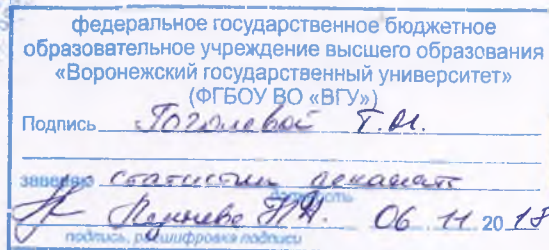 федеральное государственное бюджетное
образовательное учреждение высшего образования
«Воронежский государственный университет»
(ФГБОУ ВО «ВГУ»)
Подпись Гоголевой Т.Н.
заверяю деканата
должность
06 11 20
подпись, расшифровка подписи